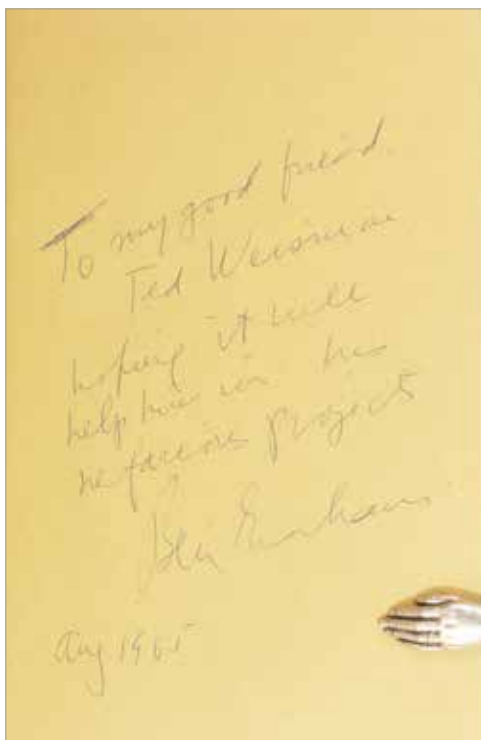 To my good friend.
Ted Weissman
hoping it will
help him in his
nefarious project
Ben Graham.
Aug 1965